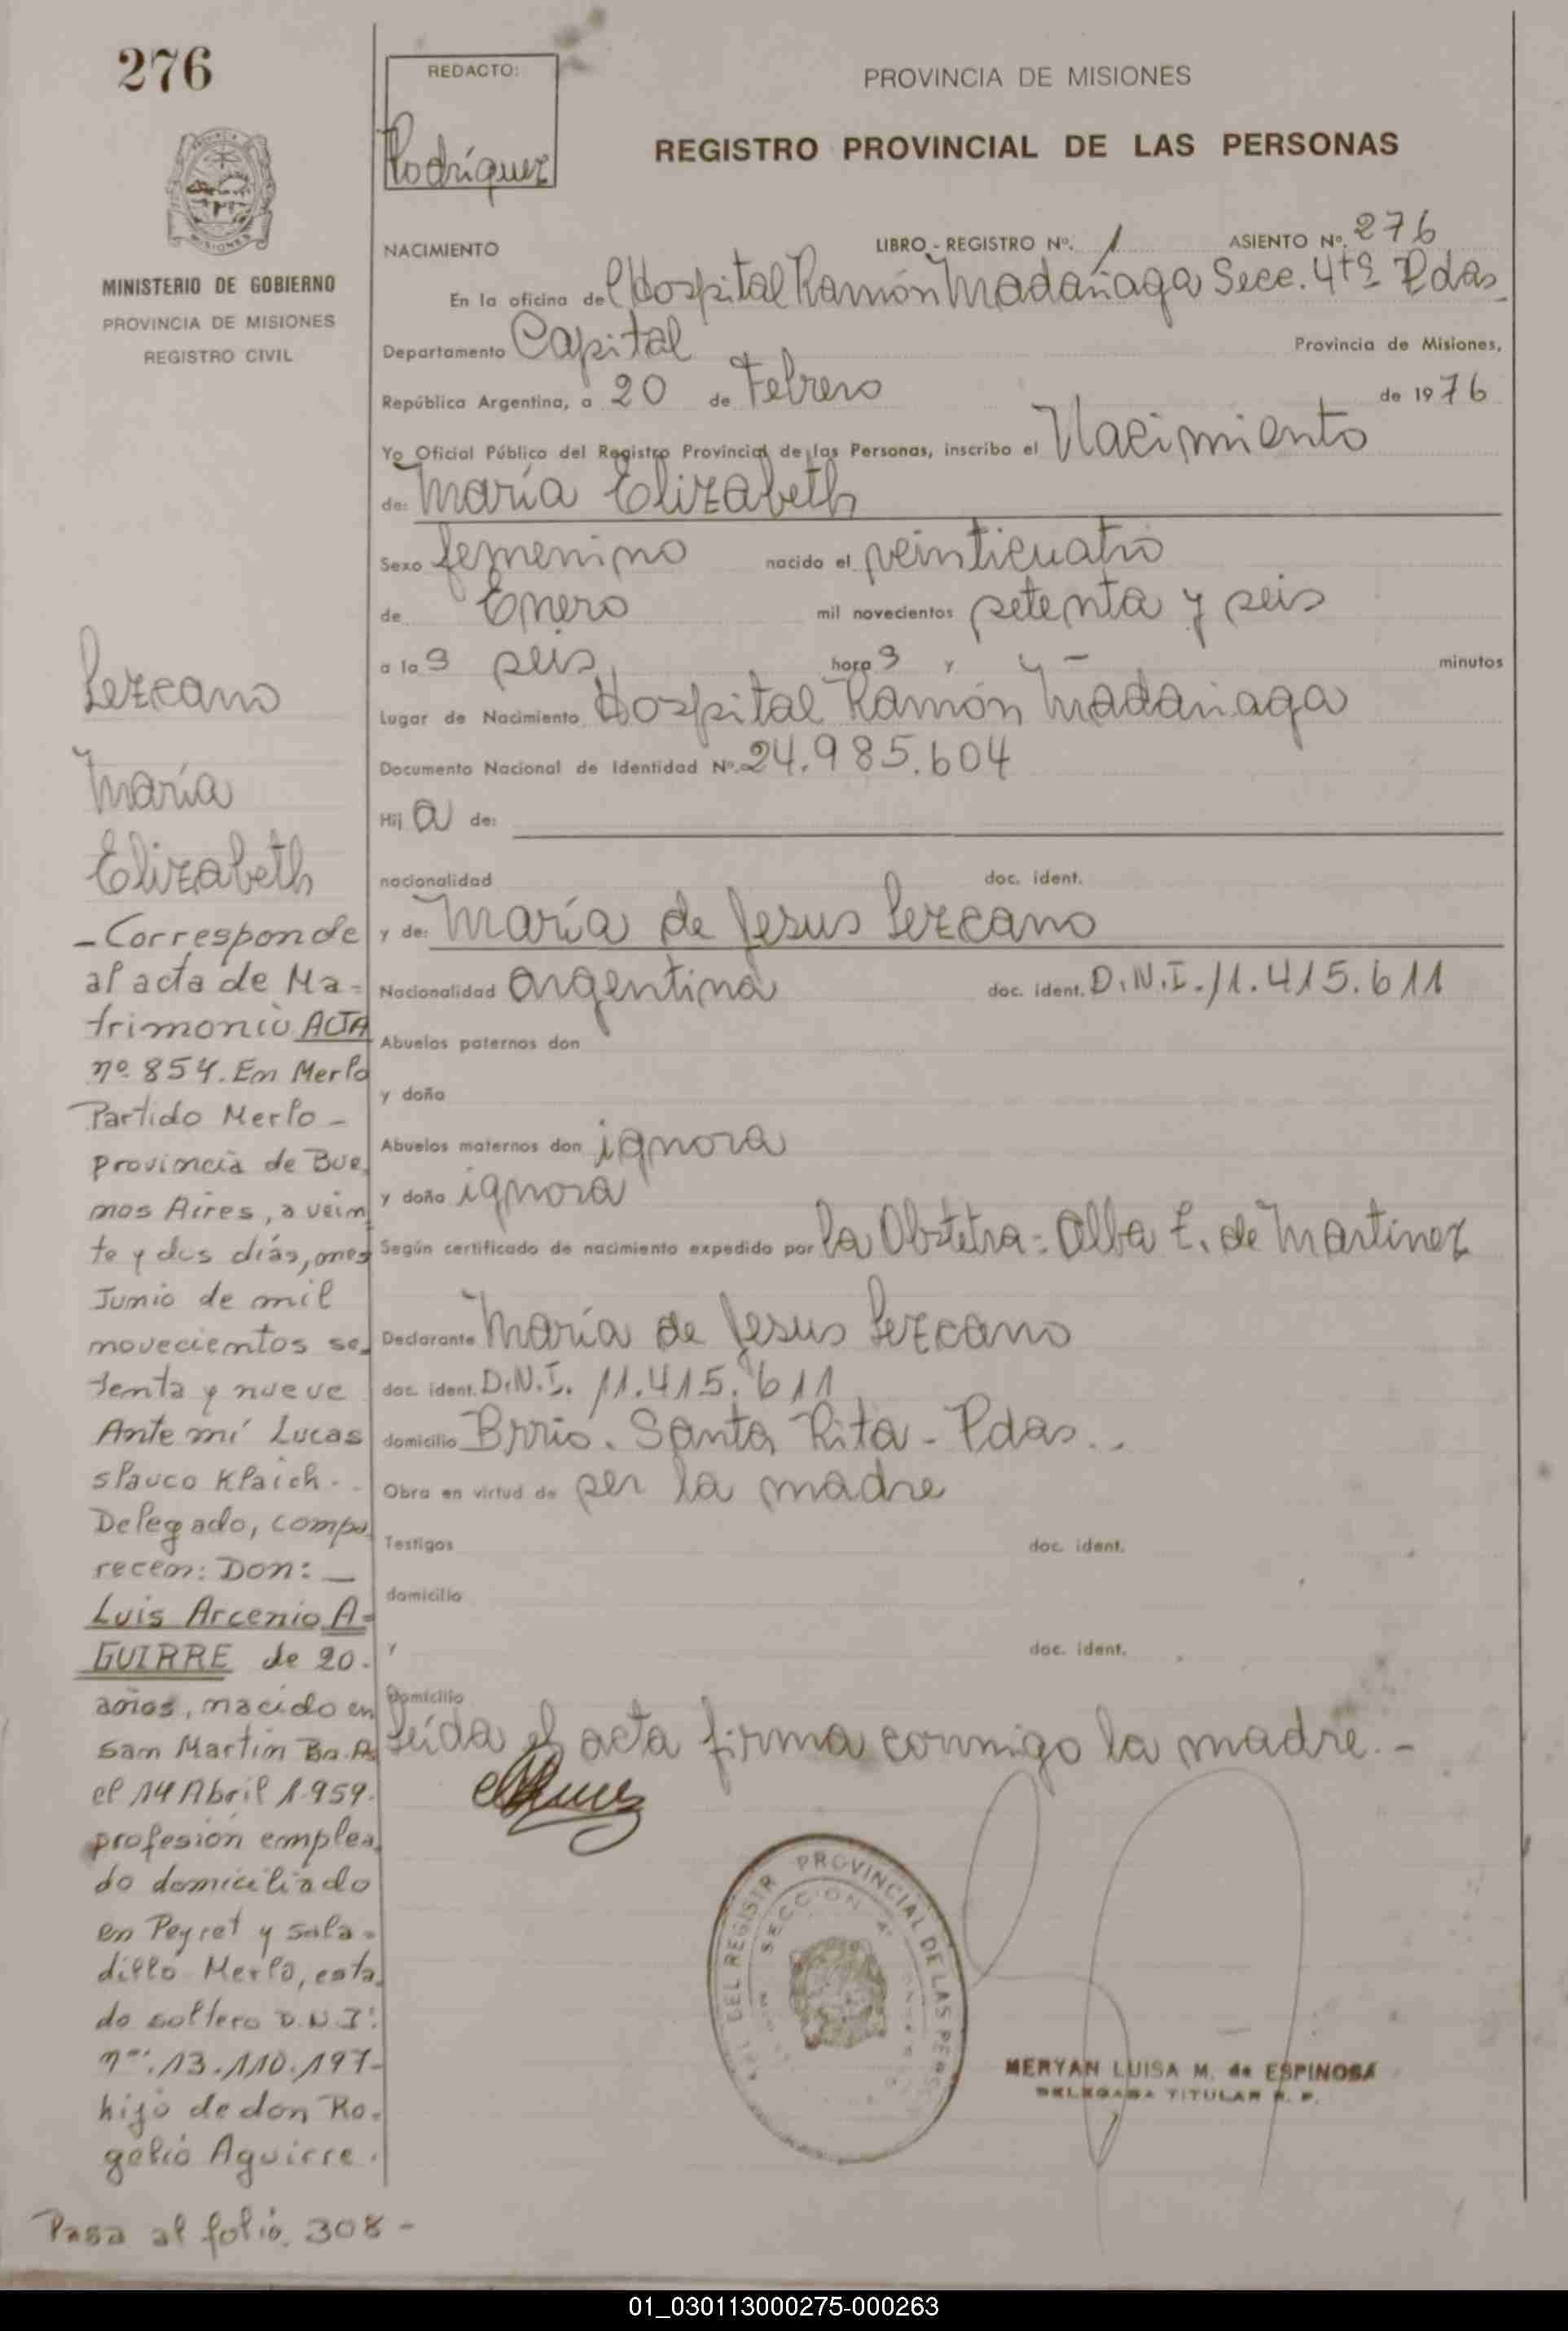 276
REDACTO:
Rodríguez
PROVINCIA DE MISIONES
REGISTRO PROVINCIAL DE LAS PERSONAS
MISIONES
MINISTERIO DE GOBIERNO
PROVINCIA DE MISIONES
REGISTRO CIVIL
NACIMIENTO LIBRO - REGISTRO Nº. 1 ASIENTO Nº. 276
En la oficina del Hospital Ramón Madariaga Secc. 4tª Pdas
Departamento Capital Provincia de Misiones,
República Argentina, a 20 de Febrero de 1976
Yo Oficial Público del Registro Provincial de las Personas, inscribo el Nacimiento
de: María Elizabeth
Sexo femenino nacido el veinticuatro
de Enero mil novecientos setenta y seis
a la s seis hora s y - minutos
Lugar de Nacimiento Hospital Ramón Madariaga
Documento Nacional de Identidad Nº. 24.985.604
Hij a de:
nacionalidad doc. ident.
y de: María de Jesus Lezcano
Nacionalidad argentina doc. ident. D.N.I. 11.415.611
Abuelos paternos don
y doña
Abuelos maternos don ignora
y doña ignora
Según certificado de nacimiento expedido por la Obstetra = Alba E. de Martinez
Declarante María de Jesus Lezcano
doc. ident. D.N.I. 11.415.611
domicilio Brrio. Santa Rita - Pdas..
Obra en virtud de ser la madre
Testigos doc. ident.
domicilio
y doc. ident.
domicilio
Leída el acta firma conmigo la madre.-
Lezcano
María
Elizabeth
- Corresponde
al acta de Ma=
trimonio ACTA
nº 854. En Merlo
Partido Merlo -
provincia de Bue
nos Aires, a vein
te y dos días, mes
Junio de mil
novecientos se
tenta y nueve
Ante mí Lucas
slauco Klaich.
Delegado, compa
recen: Don: -
Luis Arcenio A=
GUIRRE de 20.
años, nacido en
San Martin Bs.As
el 14 Abril 1.959.
profesión emplea
do domiciliado
en Peyret y sala=
dillo Merlo, esta
do soltero D.N.I:
nº: 13.110.197-
hijo de don Ro=
gelio Aguirre.
Pasa al folio. 308 -
DEL REGISTR PROVINCIAL DE LAS PE
SECCION 4ª
MERYAN LUISA M. de ESPINOSA
DELEGADA TITULAR R. P.
01_030113000275-000263